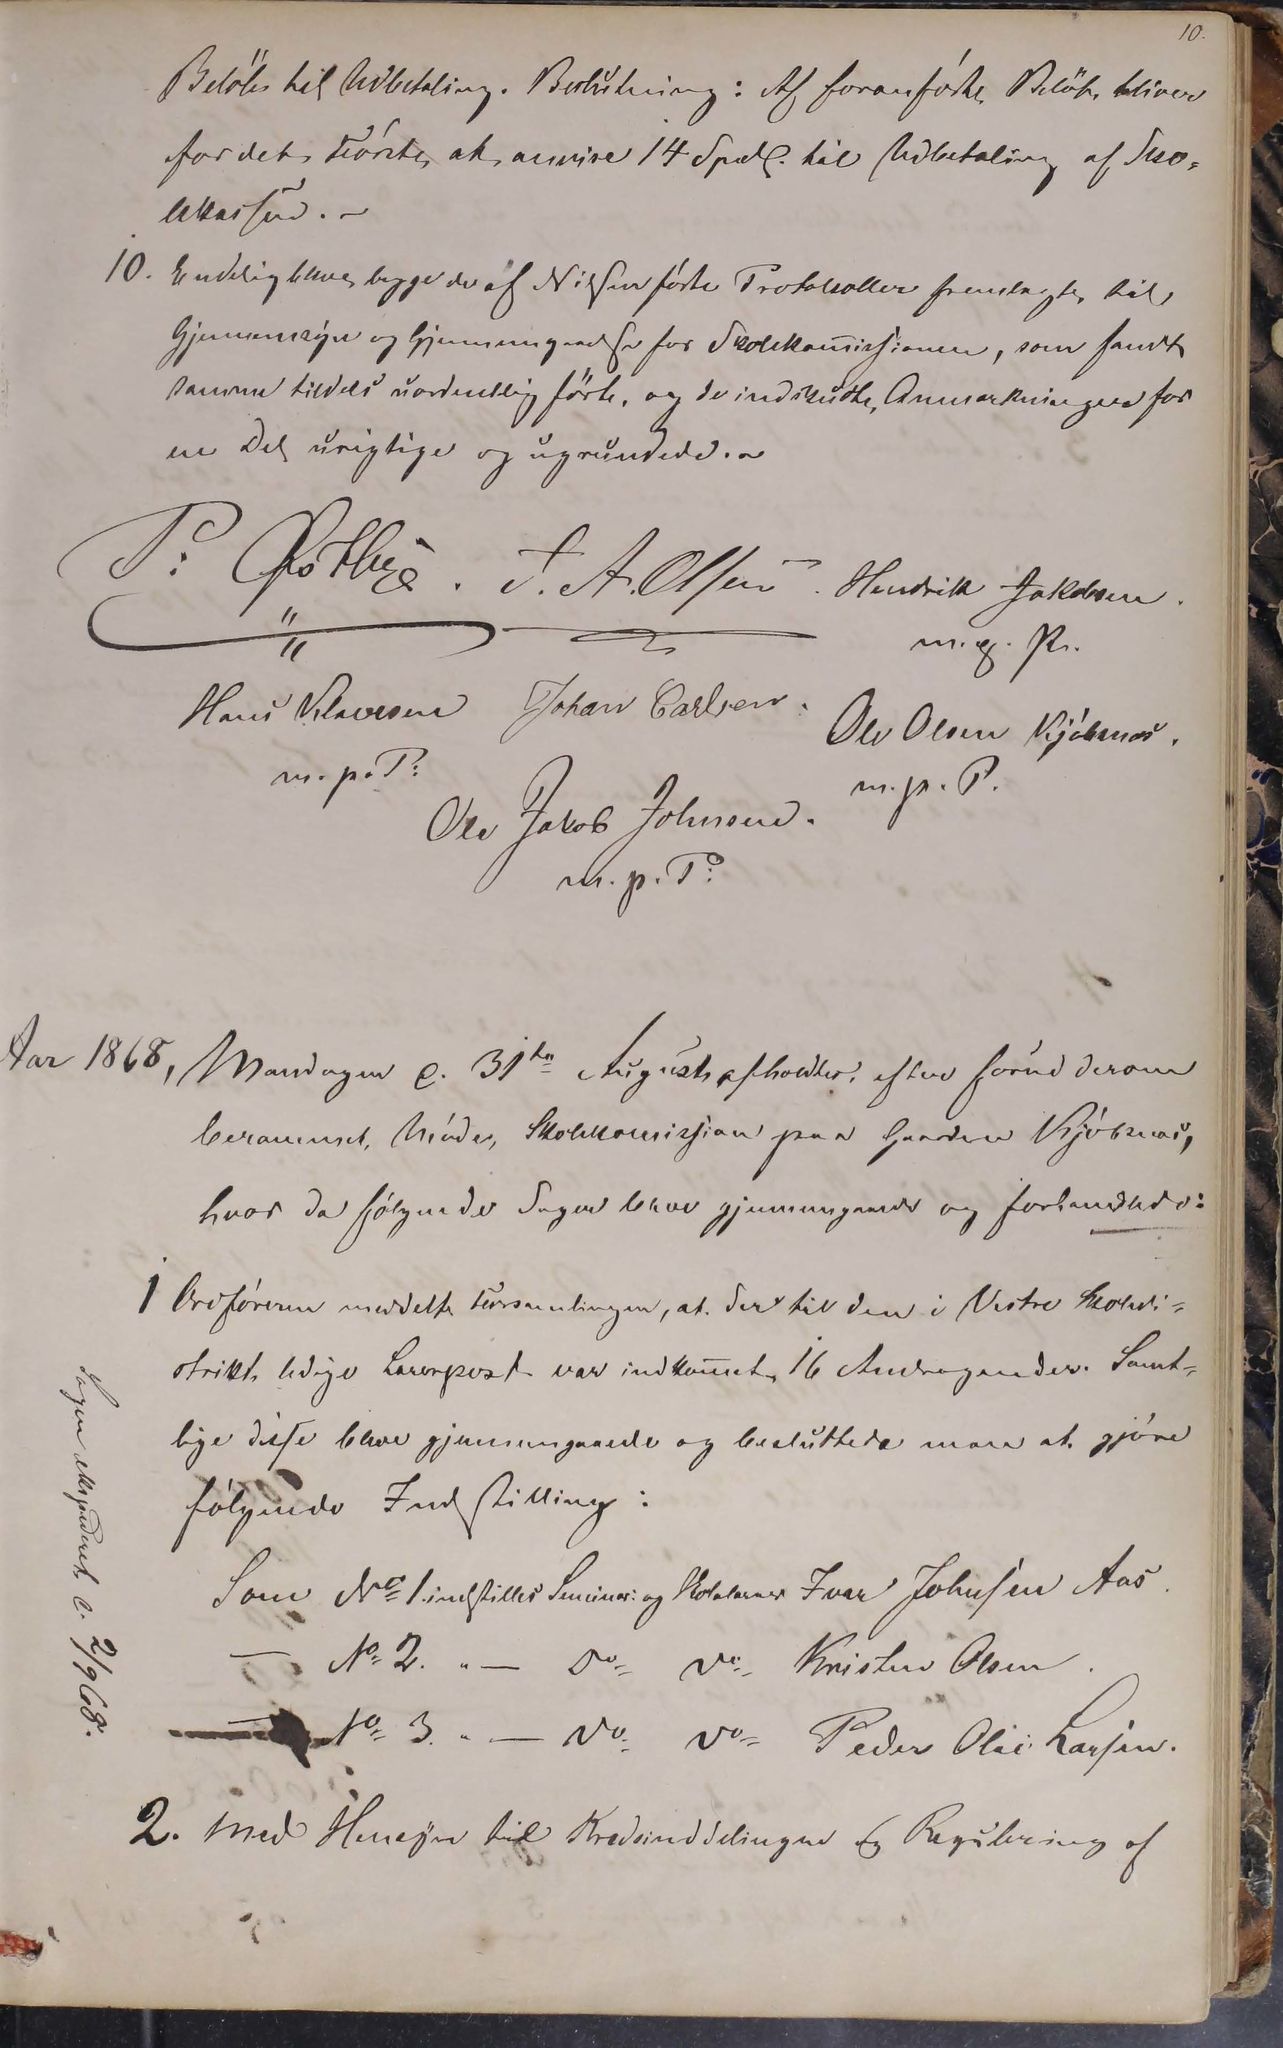 10.
Beløb til Udbetaling. Beslutning: Af foranførte Beløb bliver
for det Første at anvise 14 Spdl. til Udbetaling af Sko-
lekassen. -
10. Endelig blev begge de af Nilsen førte Protokoller fremlagte til
Gjennemsyn og Gjennemgaaelse for Skolekomissionen, som fandt
samme tildels uordentlig førte, og de indskudte Anmærkninger for
en Del urigtige og ugrundede. -
P: . F. A. Olsen . Hendrik Jakobsen.
m. p. P.
Hans Klausen Johan Carlsen.
Ole Olsen Kjøbnæs.
m. p. P:
m. p. P.
Ole Jakob Johnsen.
m. p. P:
Aar 1868, Mandagen d. 31te August afholdtes, efter forud derom
berammet Møde, Skolekomission paa Gaarden Kjøbnæs,
hvor da følgende Sager blev gjennemgaaede og forhandlede:
1 Ordføreren meddelte Forsamlingen, at der til den i Vestre Skoledi-
strikt ledige Lærerpost var indkomet 16 Andragender. Samt-
lige disse blev gjennemgaaede og besluttede man at gjøre
følgende Indstilling:
Som No 1. indstilles Seminar: og Skolelærer Ivar Johnsen Aas.
— No 2. " — Do Do Kristen Olsen.
— No 3. " — Do Do Peder Olai Larsen.
Sagen ekspederet d. 2/9 68.
2. Med Hensyn til Kredsinddelingen og Regulering af